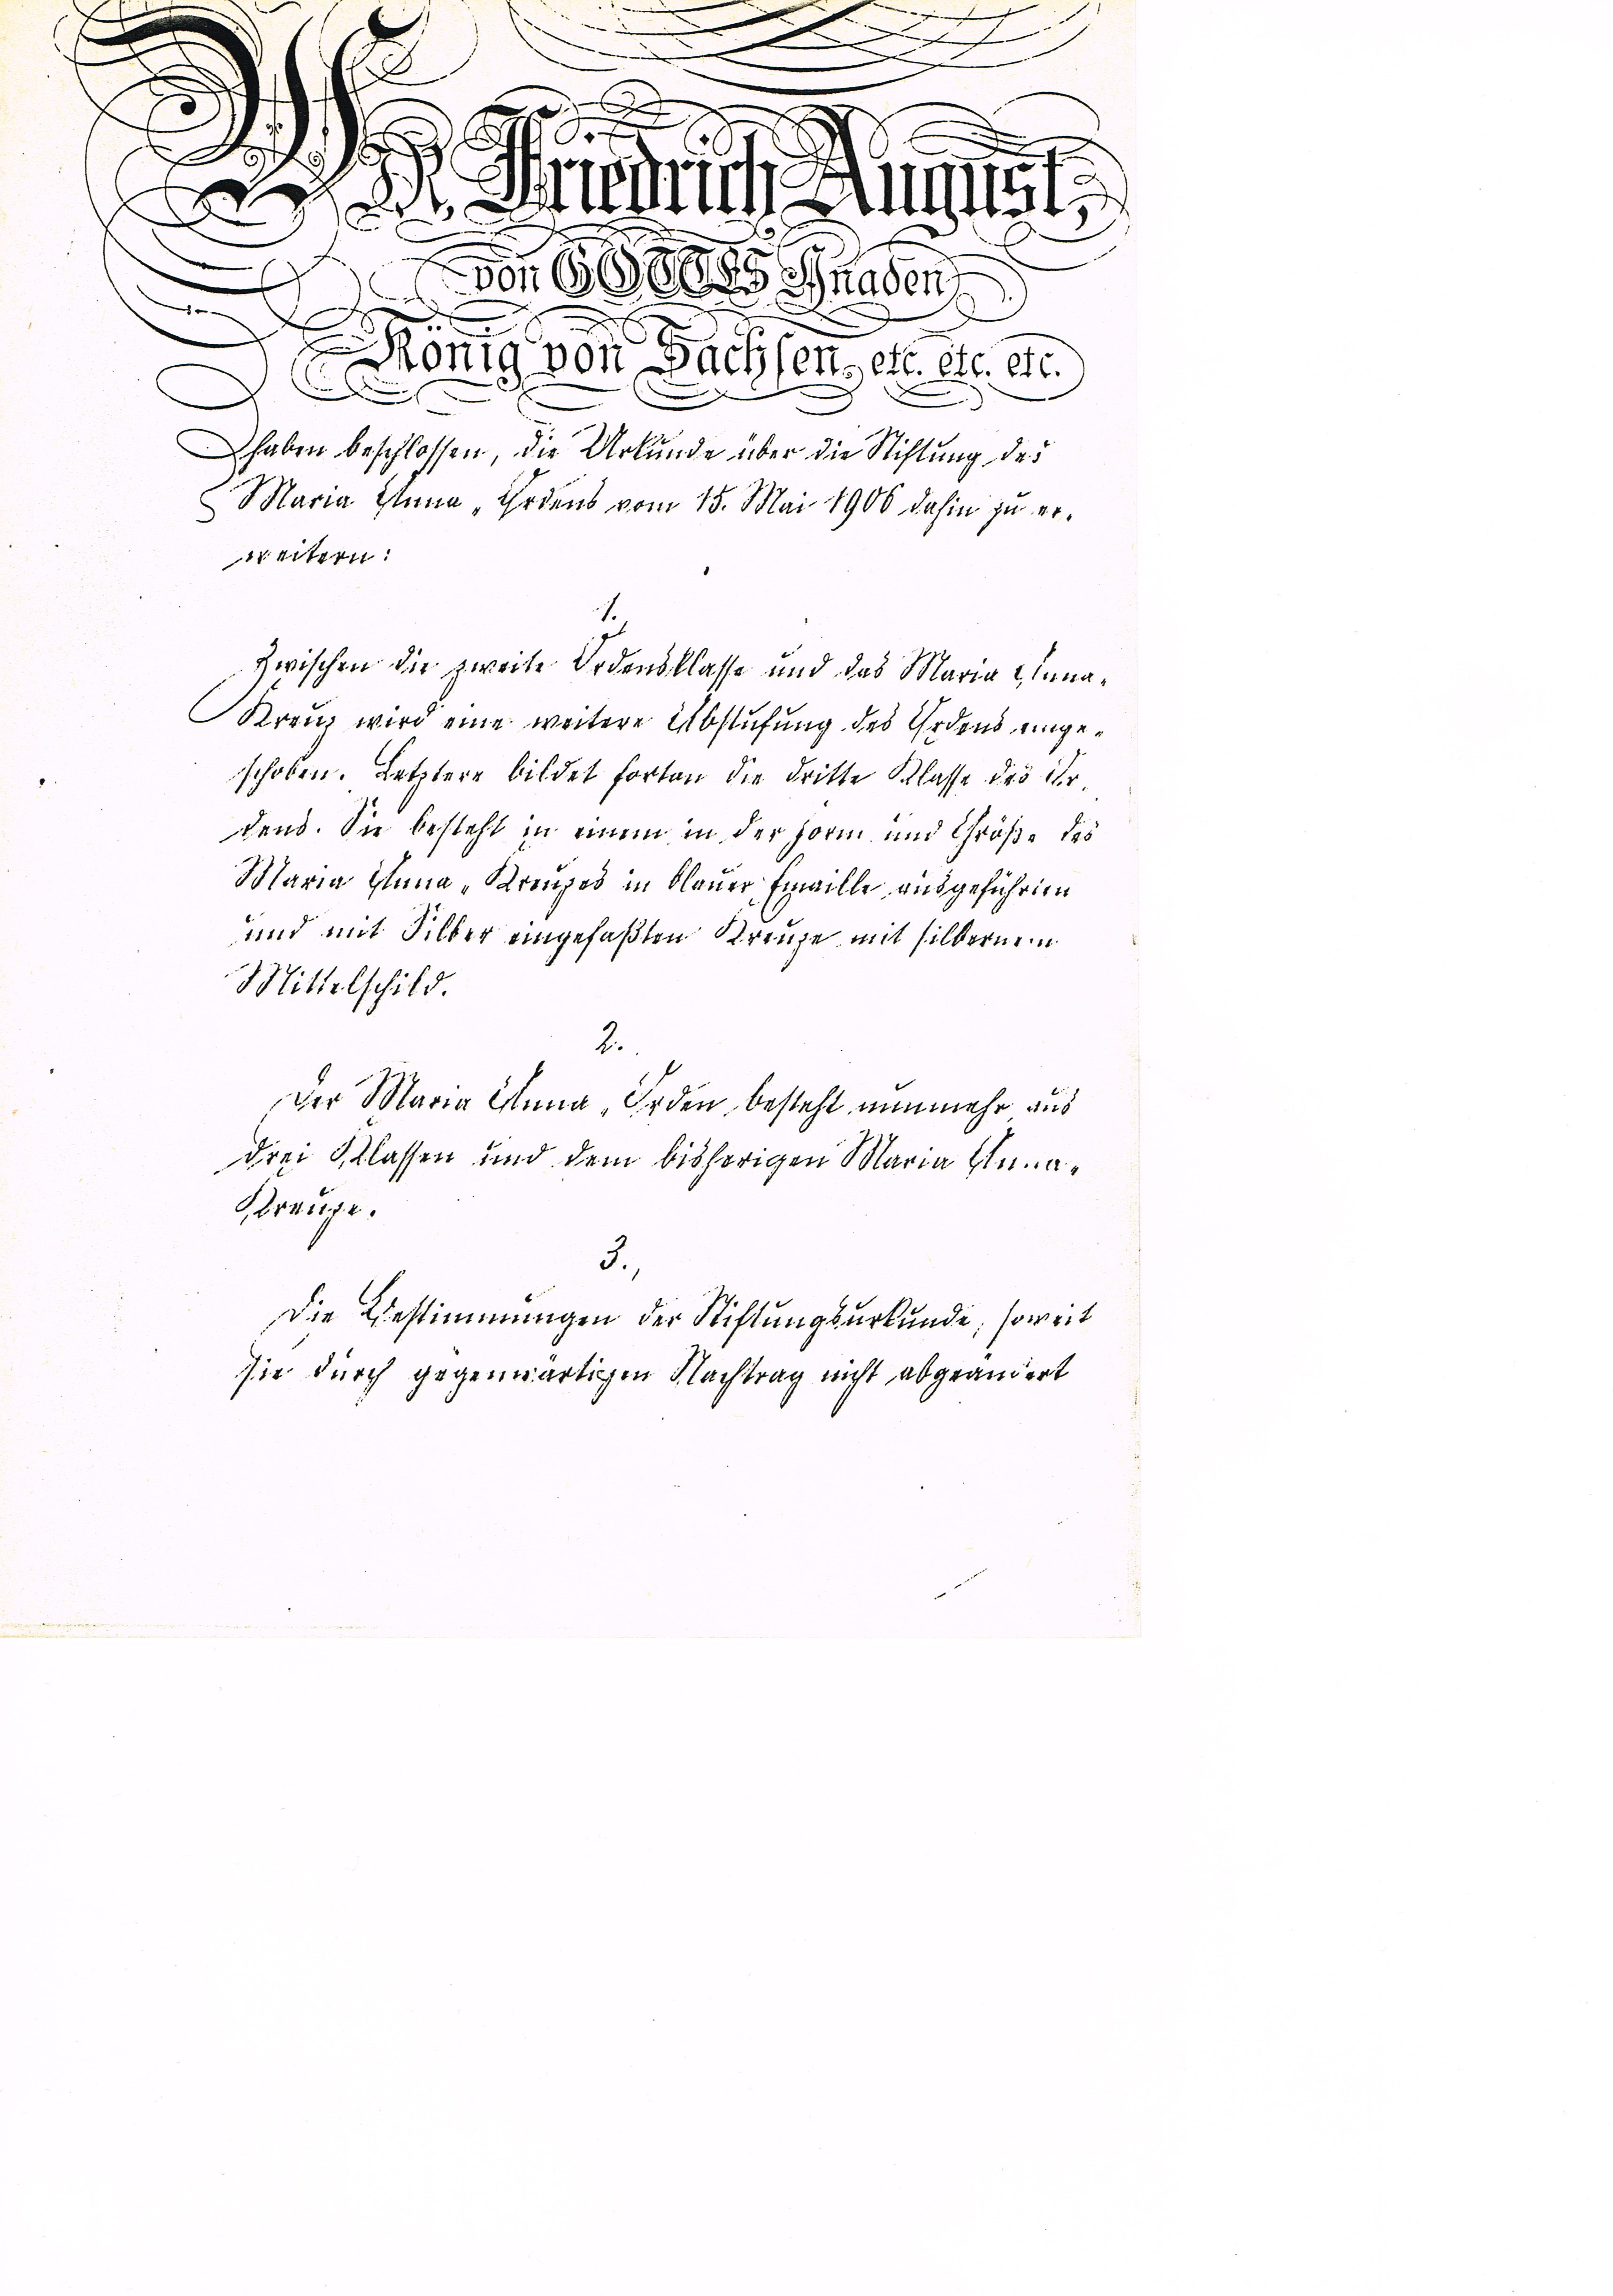 WIR, Friedrich August,
von GOTTES Gnaden
König von Sachsen, etc. etc. etc.
haben beschlossen, die Urkunde über die Stiftung des
Maria Anna-Ordens vom 15. Mai 1906 dahin zu er-
weitern:
1.
Zwischen die zweite Ordensklasse und das Maria Anna-
Kreuz wird eine weitere Abstufung des Ordens einge-
schoben. Letztere bildet fortan die dritte Klasse des Or-
dens. Sie besteht in einem in der Form und Größe des
Maria Anna-Kreuzes in blauer Emaille ausgeführten
und mit Silber eingefaßten Kreuze mit silbernem
Mittelschild.
2.
Der Maria Anna-Orden besteht nunmehr aus
drei Klassen und dem bisherigen Maria Anna-
Kreuze.
3.,
Die Bestimmungen der Stiftungsurkunde, soweit
sie durch gegenwärtigen Nachtrag nicht abgeändert